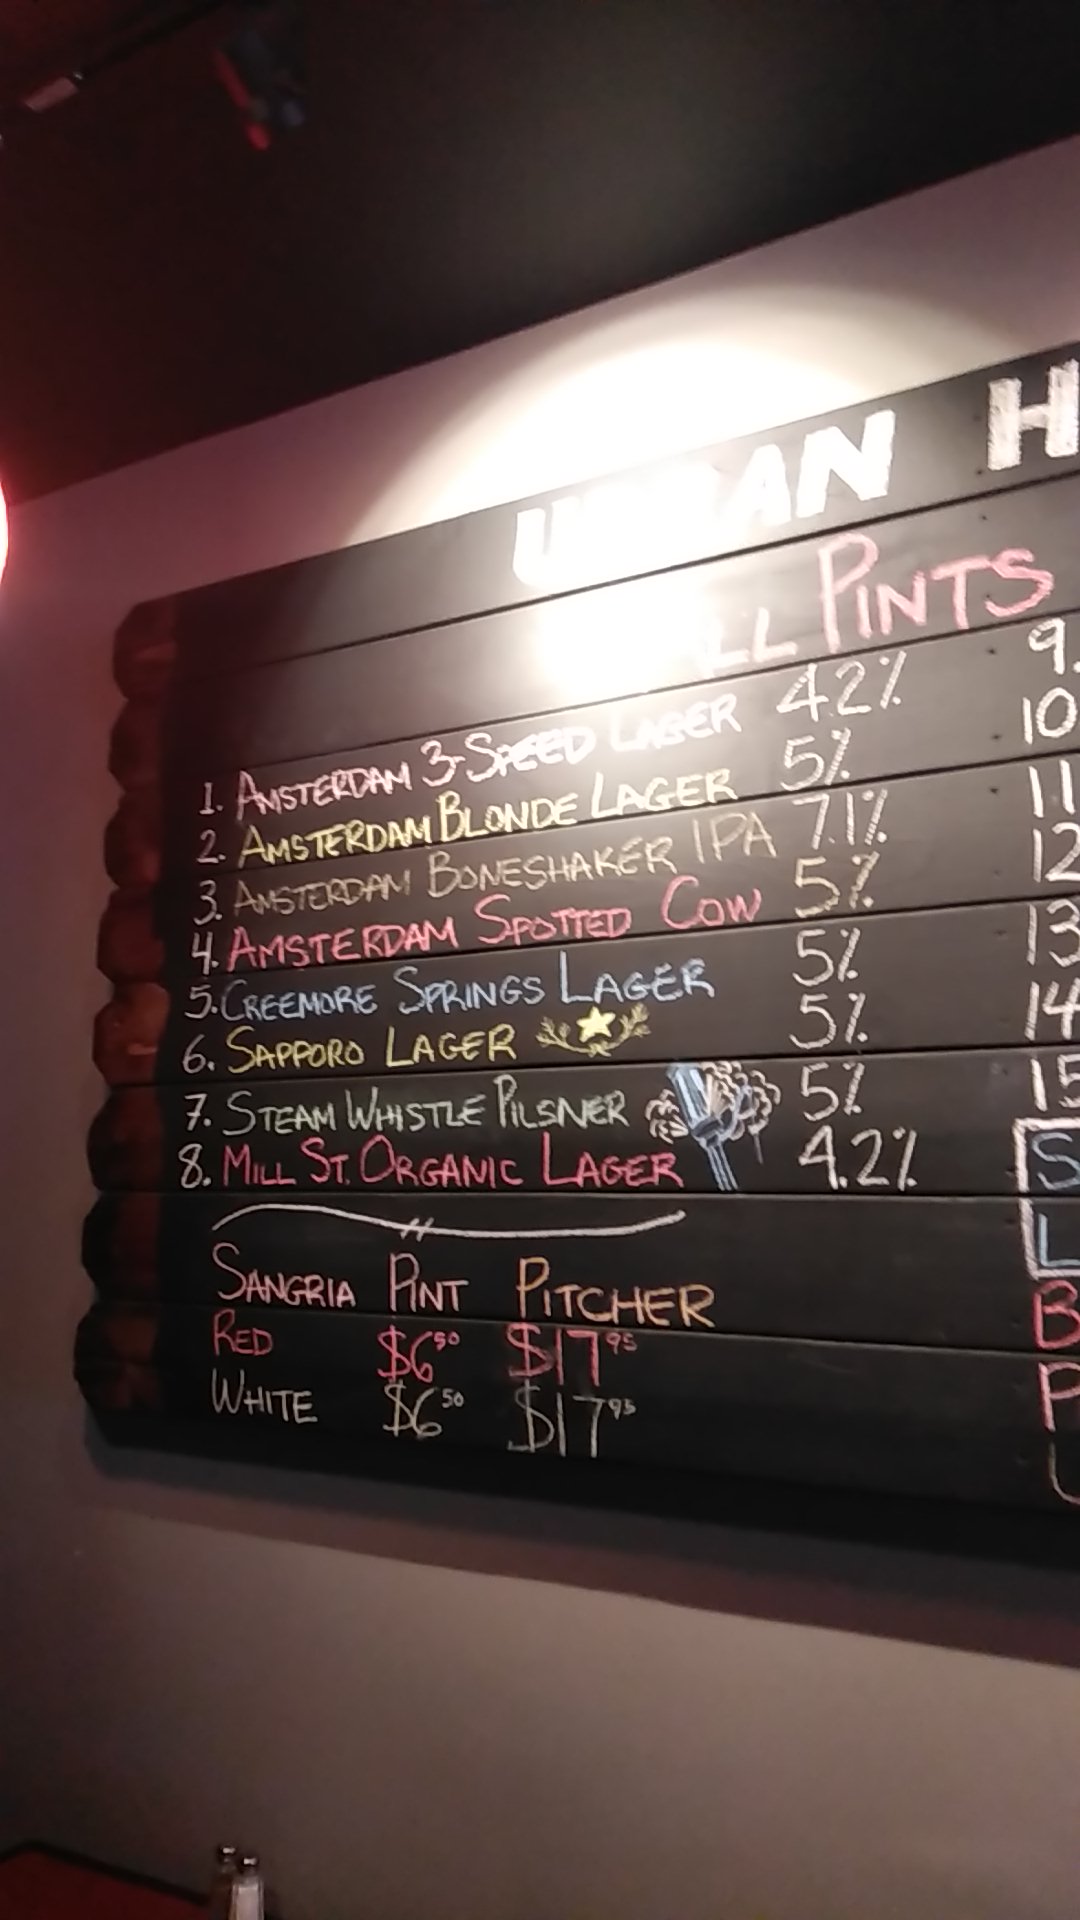 URBAN H
ALL PINTS
1. AMSTERDAM 3-SPEED LAGER 4.2%
2. AMSTERDAM BLONDE LAGER 5%
3. AMSTERDAM BONESHAKER IPA 7.1%
4. AMSTERDAM SPOTTED COW 5%
5. CREEMORE SPRINGS LAGER 5%
6. SAPPORO LAGER 5%
7. STEAM WHISTLE PILSNER 5%
8. MILL ST. ORGANIC LAGER 4.2%
9.
10
11
12
13
14
15
S
L
B
P
SANGRIA PINT PITCHER
RED $6.50 $17.95
WHITE $6.50 $17.95